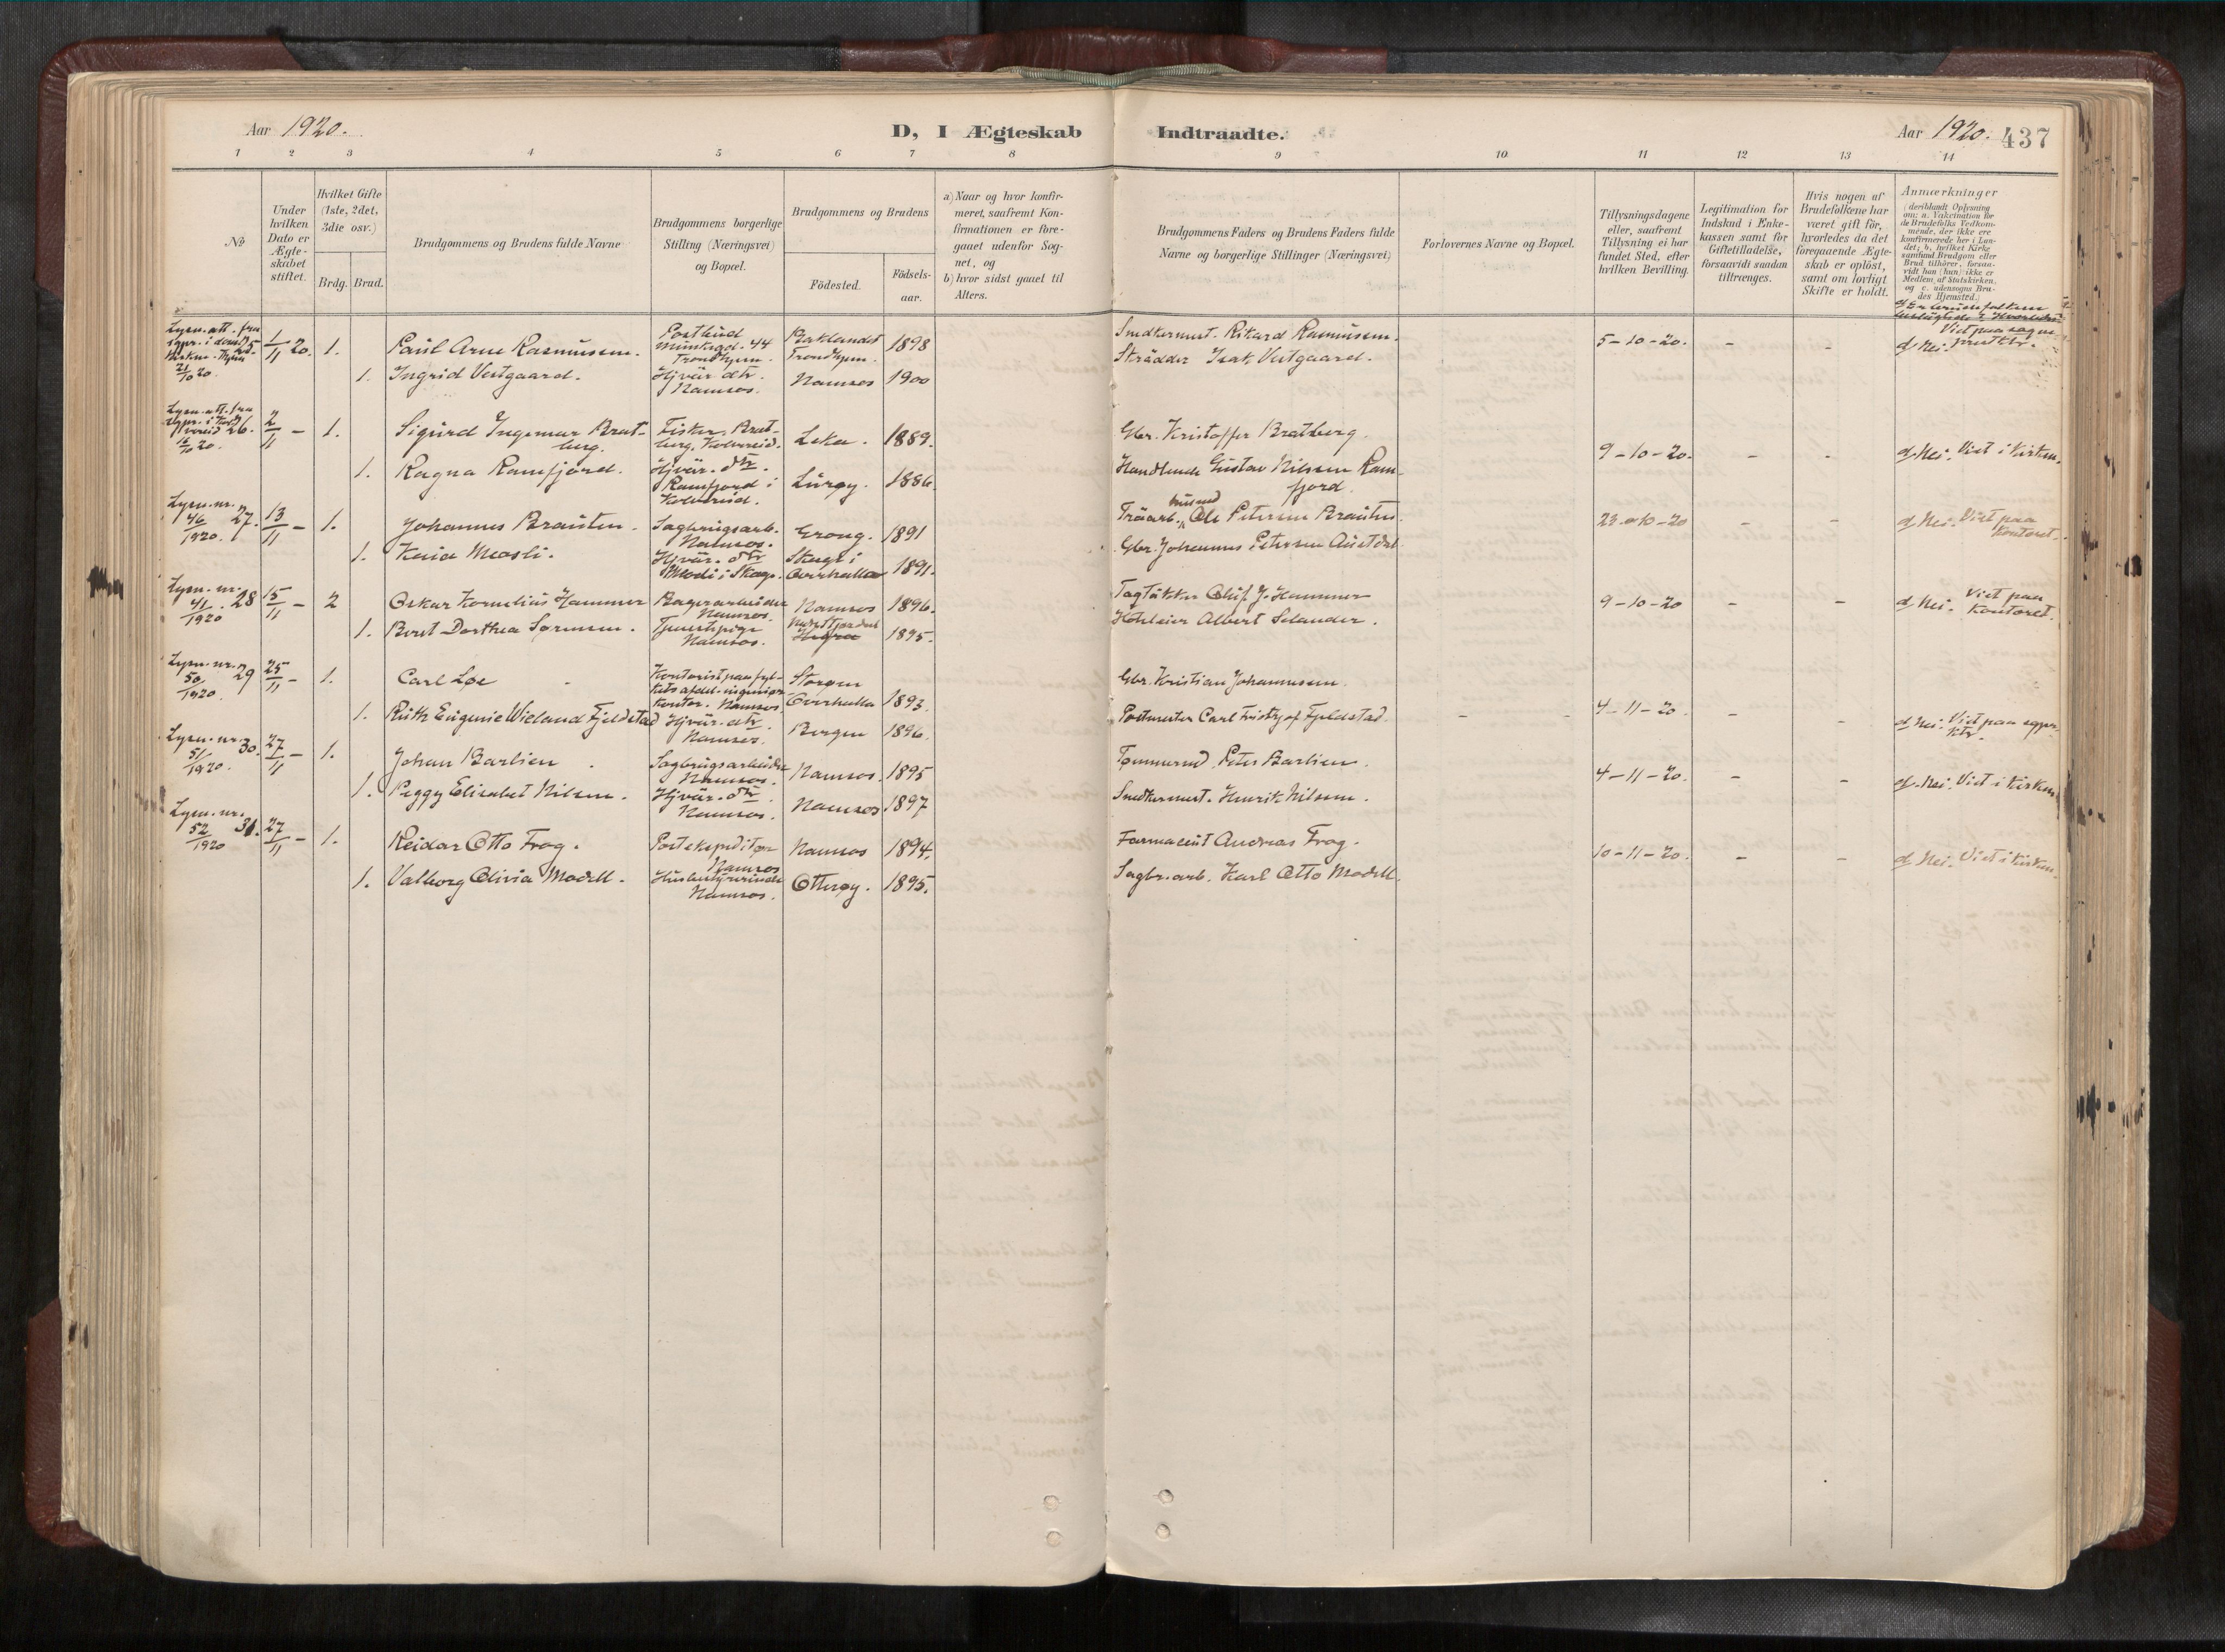 Aar 1920.
D, I Ægteskab
Indtraadte.
Aar 1920.
437
1 2 3 4 5 6 7 8 9 10 11 12 13 14
No
Under
hvilken
Dato er
Ægte-
skabet
stiftet.
Hvilket Gifte
(1ste, 2det,
3die osv.)
Brdg. Brud.
Brudgommens og Brudens fulde Navne
Brudgommens borgerlige
Stilling (Næringsvei)
og Bopæl.
Brudgommens og Brudens
Födested.
Födsels-
aar.
a) Naar og hvor konfir-
meret, saafremt Kon-
firmationen er fore-
gaaet udenfor Sog-
net, og
b) hvor sidst gaaet til
Alters.
Brudgommens Faders og Brudens Faders fulde
Navne og borgerlige Stillinger (Næringsvei)
Forlovernes Navne og Bopæl.
Tillysningsdagene
eller, saafremt
Tillysning ei har
fundet Sted, efter
hvilken Bevilling.
Legitimation for
Indskud i Enke-
kassen samt for
Giftetilladelse,
forsaavidt saadan
tiltrænges.
Hvis nogen af
Brudefolkene har
været gift för,
hvorledes da det
foregaaende Ægte-
skab er oplöst,
samt om lovligt
Skifte er holdt.
Anmærkninger
(deriblandt Oplysning
om: a. Vakcination for
de Brudefolks Vedkom-
mende, der ikke ere
konfirmerede her i Lan-
det; b. hvilket Kirke
samfund Brudgom eller
Brud tilhörer, forsaa-
vidt han (hun) ikke er
Medlem af Statskirken,
og c. udensogns Bru-
des Hjemsted.)
Lysn. att. fra
21/10 20
1/11 20. 1. Paul Arne Rasmussen. Postbud
Munkgd. 44
Trondhjem. Baklandet
Trondhjem. 1898 Snedkermest. Rikard Rasmussen. 5-10-20. - - d, Nei.
1. Ingrid Vestgaard. Hjvær. dtr.
Namsos. Namsos 1900 Skrädder Isak Vestgaard.
Lysn. att. fra
26. 2/11 - 1. Sigurd Ingemar Brat-
berg. Fisker, Brat-
berg, Kolvereid. Leka. 1889. Gbr. Kristoffer Bratberg. 9-10-20. - - d, Nei. Viet i kirken.
1. Ragna Ramfjord. Hjvær. dtr.
Ramfjord i
Kolvereid. Lurøy. 1886. Handlende Gustav Nilsen Ram-
fjord.
Lysn. nr.
46/1920. 27. 13/11 - 1. Johannes Brauten. Sagbrugsarb.
Namsos. Grong. 1891 Träarb. Ole Petersen Brauten. 23-10-20 - - d, Nei. Viet paa
kontoret.
1. Karia Moosli. Hjvær. dtr
Skage i
Overhalla 1891. Gbr. Johannes Petersen
Lysn. nr.
41/1920 28 15/11 - 2 Oskar Kornelius Hammer Bagerarbeider
Namsos. Namsos 1896. Tagtækker Oluf J. Hammer 9-10-20 - - d, Nei. Viet paa
kontoret.
1. Beret Dorthea Sørensen. Tjenestepige
Namsos. Hegra 1895. Albert Selander.
Lysn. nr.
50/1920. 29 25/11 - 1. Carl Løe Kontorist paa fyl-
kets afdel. ingeniør-
kontor. Namsos.
Overhalla 1893. Gbr. Kristian Johannesen.
1. Ruth Eugenie Wieland Fjeldstad Hjvær. dtr.
Namsos. Bergen 1896. Postmester Carl Fjeldstad. - - 4-11-20. - - d, Nei. Viet paa sogpr.
ktr.
Lysn. nr.
51/1920. 30. 27/11 - 1. Johan Barlien Sagbrugsarbeider
Namsos. Namsos. 1895 Tømmermd. Peter Barlien. 4-11-20. - - d. Nei. Viet i kirken
1. Peggy Elisabet Nilsen. Hjvær. dtr.
Namsos. Namsos 1897 Snedkermest. Henrik Nilsen.
Lysn. nr.
52/1920 31. 27/11 - 1. Reidar Otto Frog. Postekspeditør
Namsos Namsos 1894. Farmaceut Andreas Frog. 10-11-20. - - d, Nei. Viet i kirken.
1. Valborg Olivia Modell. Husbestyrerinde
Namsos. Otterøy. 1895. Sagbr. arb. Karl Otto Modell.